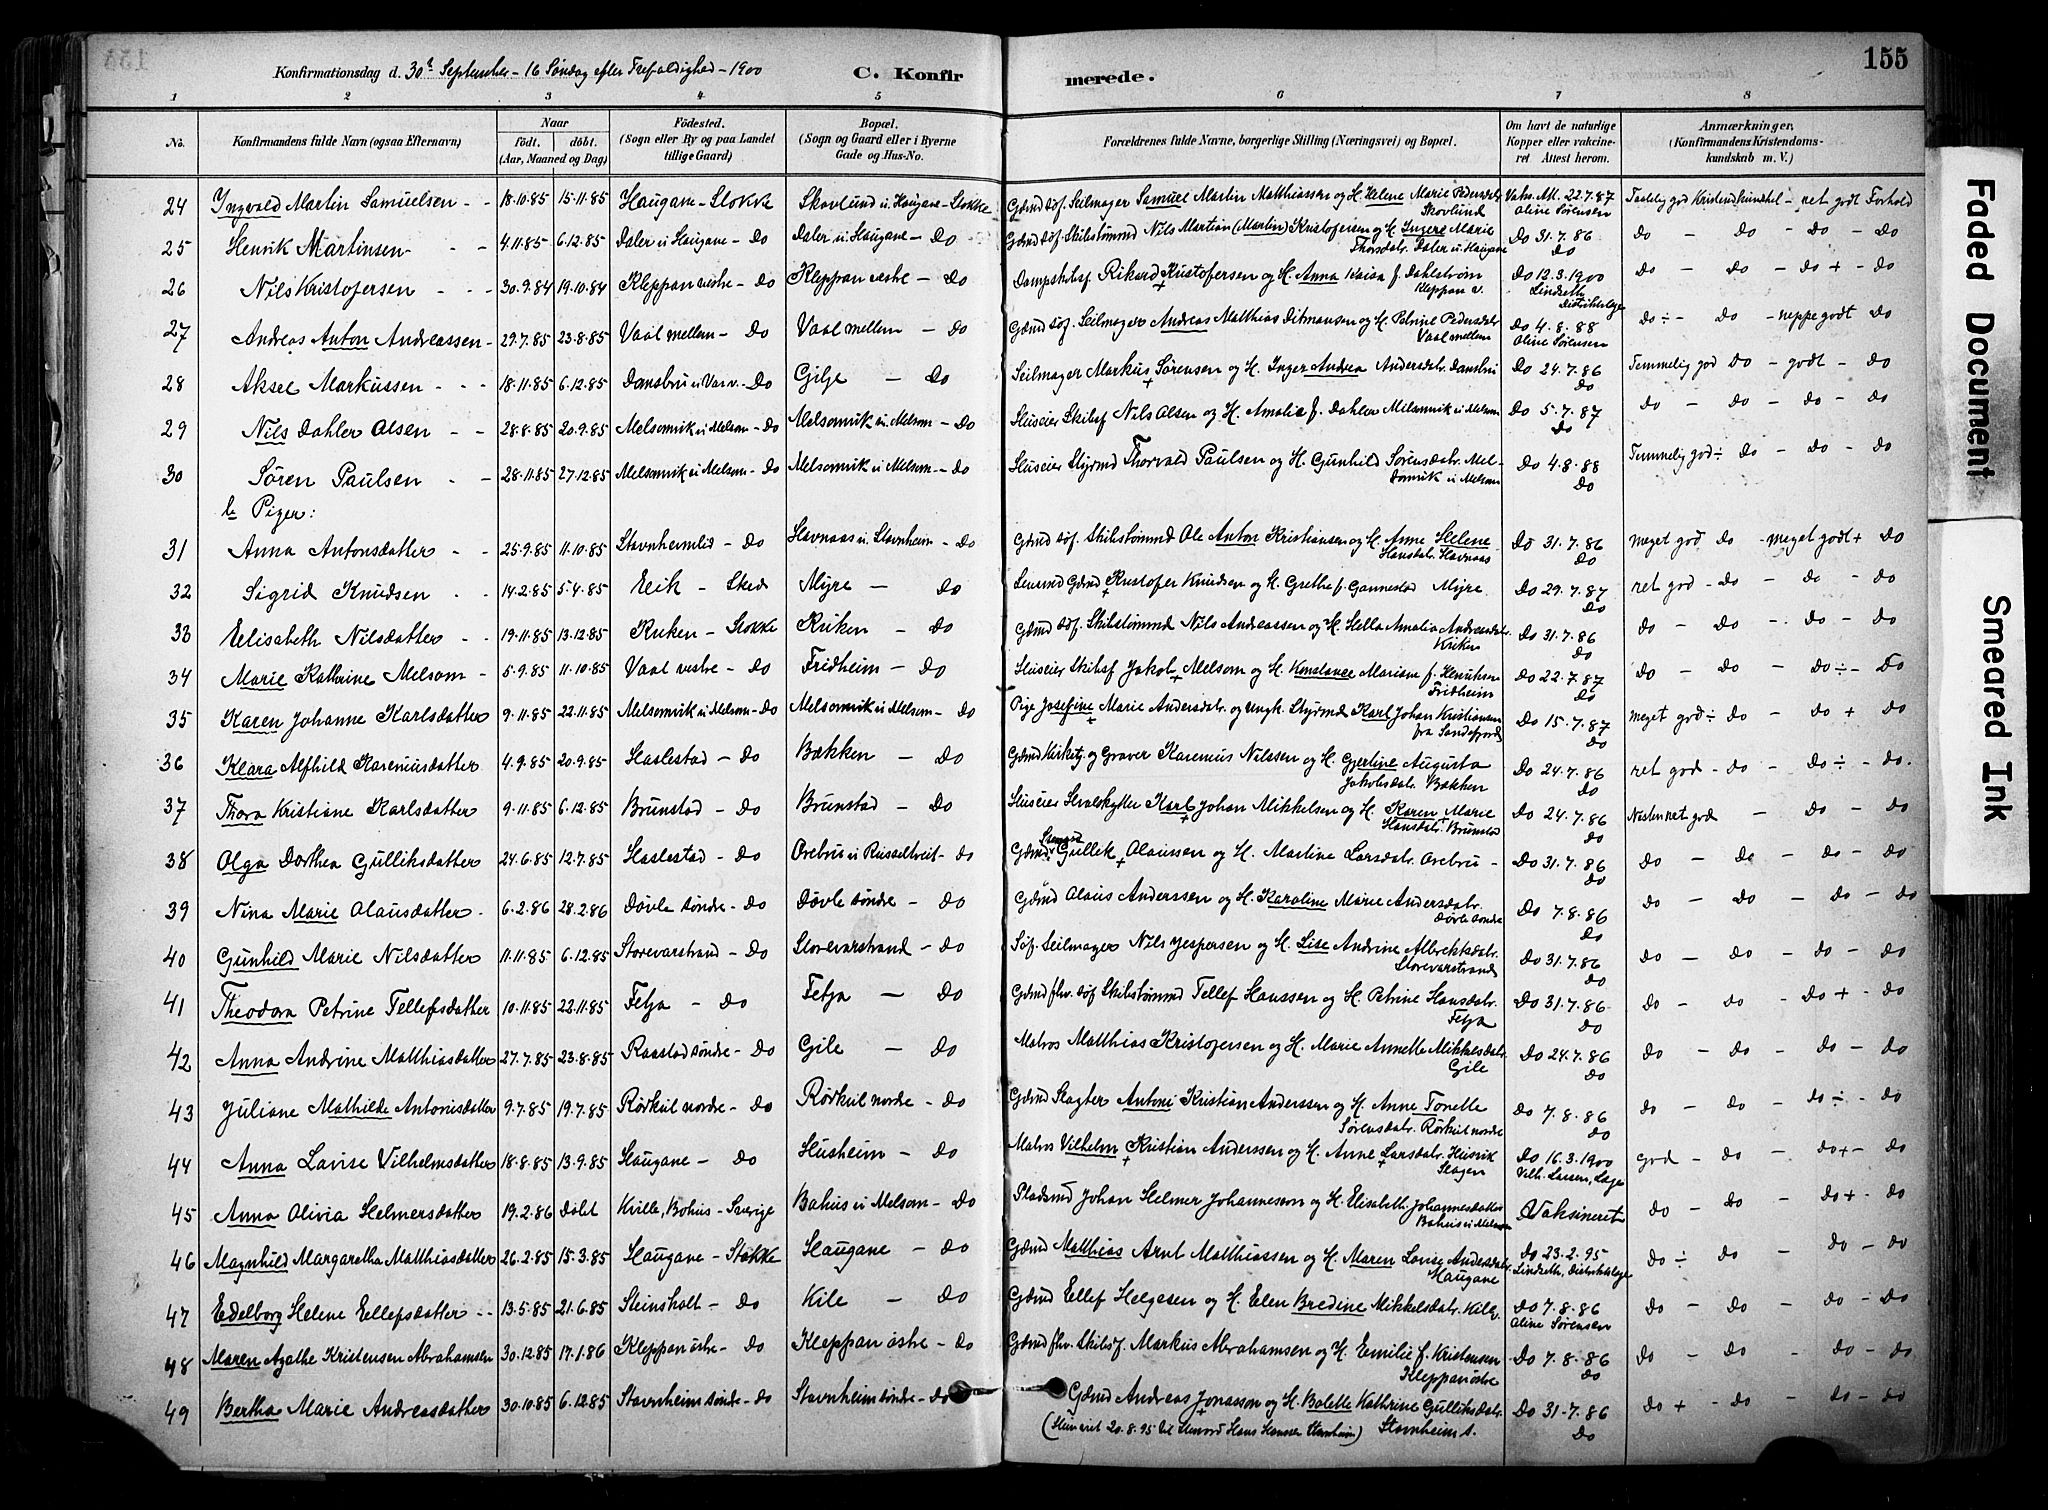 155
Konfirmationsdag d. 30te September - 16 Søndag efter Trefoldighed - 1900 C. Konfirmerede.
1 2 3 4 5 6 7 8
No. Konfirmandens fulde Navn (ogsaa Efternavn) Naar født. døbt. (Aar, Maaned og Dag) Fødested. (Sogn eller By og paa Landet tillige Gaard) Bopæl. (Sogn og Gaard eller i Byerne Gade og Hus-No. Forældrenes fulde Navne, borgerlige Stilling (Næringsvei) og Bopæl. Om havt de naturlige Kopper eller vakcineret Attest herom. Anmærkninger. (Konfirmandens Kristendomskundskab m. V.)
24 Ingvald Martin Samuelsen - - 18.10.85 15.11.85 Haugane - Stokke Skovlund u. Haugane - Stokke Gdmd Søf. Seilmager Samuel Martin Matthiassen og H. Helene Marie Pedersdtr. Skovlund Vaks. Att. 22.7.87 Oline Sørensen Taalelig god Kristendkundsk - ret godt Forhold
25 Henrik Martinsen - - 4.11.85 6.12.85 Daler u. Haugane - Do Daler u. Haugane - Do Gdmd Søf. Skibstømmd Nils Martian (Martin) Kristofersen og H. Ingere Marie Thorsdatr. Daler u. Haugane Do 31.7.86 Do do - do - do - do
26 Nils Kristofersen - - - 30.9.84 19.10.84 Kleppan vestre - Do Kleppan vestre - Do Dampskibsf. Rikard Kristofersen og H. Anna Kaisa f. Dahlstrøm Kleppan v. Do 12.3.1900 Lindseth Distriktslæge do - do - do + - do
27 Andreas Anton Andreassen - 29.7.85 23.8.85 Vaal mellem - Do Vaal mellem - Do Gdmd Søf. Seilmager Andreas Matthias Ditmansen og H. Petrine Pedersdtr Vaal mellem Do 4.8.88 Oline Sørensen do ÷ - Do - neppe godt Do
28 Aksel Markussen - - - 18.11.85 6.12.85 Dansbru u. Vaar v. - Do Gilje - Do Seilmager Markus Sørensen og H. Inger Andrea Andersdatr. Dansbru Do 24.7.86 Do Temmelig god Do - godt - Do
29 Nils Dahler Olsen - - 28.8.85 20.9.85 Melsomvik u. Melsom - Do Melsomvik u. Melsom - Do Huseier Skibsf Nils Olsen og H. Amalie f. Dahler Melsomvik u. Melsom Do 5.7.87 Do do - do - do - do
30 Søren Paulsen - - 28.11.85 27.12.85 Melsomvik u. Melsom - Do Melsomvik u. Melsom - Do Huseier Styrmd Thorvald Paulsen og H. Gunhild Sørensdatr. Melsomvik u. Melsom Do 4.8.88 Do Temmelig god ÷ do - Do - do
b. Piger:
31 Anna Antonsdatter - - 25.9.85 11.10.85 Stavnheimlid - Do Havnaas u. Stavnheim - Do Gdmd Søf. Skibstømmd Ole Anton Kristiansen og H. Anne Helene Hansdatr. Havnaas Do 31.7.86 Do Meget god do - meget godt + Do
32 Sigrid Knudsen - - 14.2.85 5.4.85 Eeik - Sked Myre - Do Gdmd Kristofer Knudsen og H. Grethe f. Gannestad Myre Do 29.7.87 Do ret god - do - do - do
33 Elisabeth Nilsdatter - 19.11.85 13.12.85 Kriken - Stokke Kriken - Do Gdmd Søf. Skibstømmd Nils Andreassen og H. Hella Amalia Andreasdtr. Kriken Do 31.7.86 Do do - Do - do - do
34 Marie Kathrine Melsom - 5.9.85 11.10.85 Vaal vestre - Do Fridheim - Do Huseier Skibsf Jakob Melsom og H. Konstance Mariane f. Henriksen Fridheim Do 22.7.87 do do - Do - Do ÷ - Do
35 Karen Johanne Karlsdatter 9.11.85 22.11.85 Melsomvik u. Melsom - Do Melsomvik u. Melsom - Do Pige Josefine Marie Andersdatr. og ungk. Styrmd Karl Johan Kristiansen fra Sandefjord Do 15.7.87 Do meget god ÷ do - do + do
36 Klara Alfhild Kareniusdatter 4.9.85 20.9.85 Haslestad - do Bækken - do Gdmd Kirketj. og Graver Karenius Nilssen og H. Gjertine Augusta Jakobsdatr. Bækken Do 24.7.86 do ret god - do - do ÷ - do.
37 Thora Kristiane Karlsdatter 9.11.85 6.12.85 Brunstad - do Brunstad - Do Huseier Hvalskytter Karl Johan Mikkelsen og H. Karen Marie Hansdatr. Brunstad Do 24.7.86 do Næsten ret god - do - do
38 Olga Dorthea Gulliksdatter 24.6.85 12.7.85 Haslestad - Do Orebru u. Russeltveit - do Gdmd Gullik Olaussen og H. Martine Larsdatr. Orebru - Do 31.7.86 do do - do - do - do
39 Nina Marie Olausdatter - 6.2.86 28.2.86 Døvle søndre - Do Døvle søndre - Do Gdmd Olaus Anderssen og H. Karoline Marie Andersdatr. Døvle søndre Do 7.8.86 do do - do - do - do
40 Gunhild Marie Nilsdatter 11.11.85 6.12.85 Storevarstrand - Do Storevarstrand - do Søf. Seilmager Nils Jespersen og H. Lise Andrine Albrektsdatr. Storevarstrand Do 31.7.86 do do - do - do - do
41 Theodora Petrine Tellefsdatter 10.11.85 22.11.85 Felja - do Felja - Do Gdmd fhv. Søf Skibstømmd Tellef Hanssen og H. Petrine Hansdatr. Felja Do 31.7.86 do do - do - do + - do
42 Anna Andrine Matthiasdatter 27.7.85 23.8.85 Raastad søndre - Do Gile - do Matros Matthias Kristofersen og H. Marie Annette Mikkelsdatr. Gile Do 24.7.86 do do - do - do - do
43 Juliane Mathilde Antonisdatter 9.7.85 19.7.85 Rørkul nordre - do Rørkul nordre - Do Gdmd Slagter Antoni Kristian Anderssen og H. Anne Tonette Sørensdatr. Rørkul nordre Do 7.8.86 do do - do - do ÷ - do
44 Anna Lovise Vilhelmsdatter 18.8.85 13.9.85 Haugane - do Husheim - do Matros Vilhelm Kristian Anderssen og H. Anne Larsdatr. Husvik Slagen Do 16.3.1900 Vilh. Larsen, Læge god - do - do + - do
45 Anna Olivia Helmersdatter 19.2.86 døbt Kville, Bohus - Sverige Bohus u. Melsom - Do Pladsmd Johan Helmer Johannesson og H. Elisabeth Johannesdatter Bohus u. Melsom Vaksineret do - do - do + - do
46 Magnhild Margaretha Matthiasdatter 26.2.85 15.3.85 Haugane - Stokke Haugane - do Gdmd Matthias Arnt Matthiassen og H. Maren Lovise Andersdatr. Haugane Do 23.2.95 Lindseth, Distriktslæge do ÷ do - do - do
47 Edelborg Helene Ellefsdatter - - 13.5.85 21.6.85 Steinsholt - do Kile - do Gdmd Ellef Helgesen og H. Elen Bredine Mikkelsdatr. Kile Do 7.8.86 Oline Sørensen do - do - do - do
48 Maren Agathe Kristensen Abrahamsen 30.12.85 17.1.86 Kleppan østre - do Kleppan østre - Do Gdmd fhv. Skibsf. Markus Abrahamsen og H. Emilie f. Kristensen Kleppan østre Do 7.8.86 do do - do - do - do
49 Bertha Marie Andreasdatter 30.10.85 6.12.85 Stavnheim søndre - do Stavnheim søndre - do Gdmd Andreas Jonasson og H. Bolette Kathrine Gulliksdatr. Do 31.7.86 do do + - do - do - do
20.8.95 til Hans Hanssen Stavnheim) Stavnheim s.
Faded Document
Smeared Ink